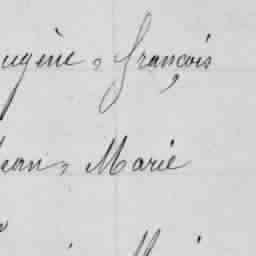 ugène, françois
ean, Marie